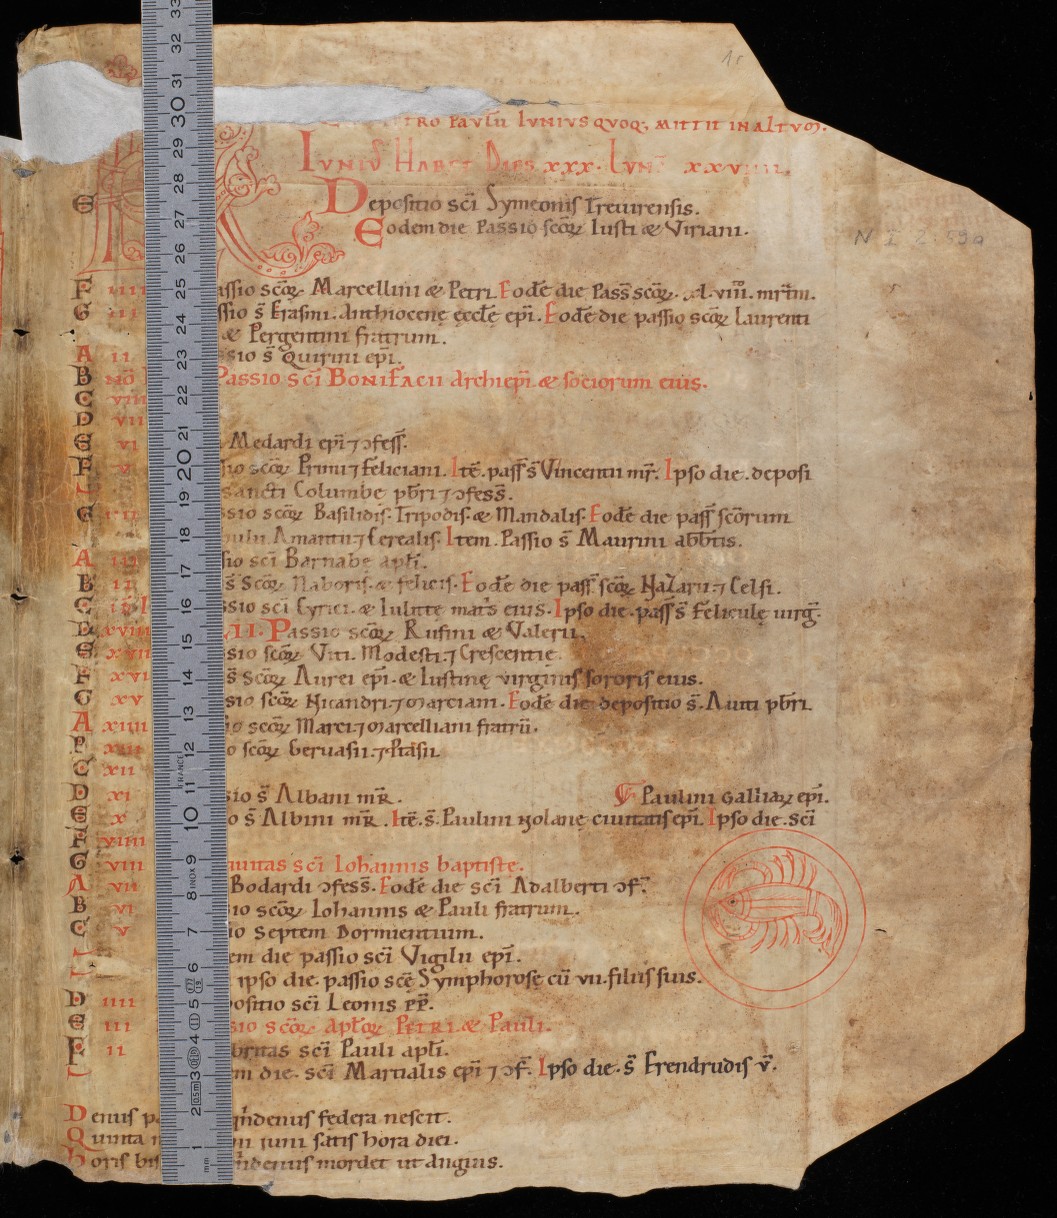 1r
TRO PAVLU IVNIVS QVOQ; MITTIT IN ALTVO.
IVNIVS HABET DIES XXX. LVN XXVIIII.
E Depositio sc̄i Symeonis Treuirensis.
Eodem die Passio scōꝝ Iusti & Viriani.
N I 2 59a
F IIII assio scōꝝ Marcellini & Petri. Eodē die Pass̄ scōꝝ. xl.viii. mr̄tm.
G III ssio s̄ Erasmi. Anthiocenę ęccłę ep̄i. Eodē die passio scōꝝ Laurenti
& Pergentini fratrum.
A II sio s̄ Quirini ep̄i.
B NŌ Passio sc̄i BONIFACII Archiep̄i & sociorum eius.
C VIII
D VII
E VI Medardi ep̄i ⁊ ɔfess̄.
F sio scōꝝ Primi ⁊ Feliciani. Itē. pass̄ s̄ Vincentii mr̄. Ipso die. deposi
sancti Columbę pb̄ri ⁊ ɔfess̄.
G ssio scōꝝ Basilidis. Tripodis. & Mandalis. Eodē die pass̄ scōrum
Amantii ⁊ Cerealis. Item. Passio s̄ Maurini abb̄tis.
A III sio sc̄i Barnabę apłi.
B II s̄ scōꝝ Naboris. & felicis. Eodē die pass̄ scōꝝ Nazarii ⁊ Celsi.
C ssio sc̄i Cyrici. & Iulittę mat̄s eius. Ipso die. pass̄ s̄ Feliculę uirḡ.
D XVIII VII. Passio scōꝝ Rufini & Valerii.
E XVII sio scōꝝ Viti. Modesti. ⁊ Crescentię.
F XVI s̄ scōꝝ Aurei ep̄i. & Iustinę virginis sororis eius.
G XV sio scōꝝ Nicandri. ⁊ Marciani. Eodē die depositio s̄. Auiti pb̄ri.
A XIIII io scōꝝ Marci ⁊ Marcelliani fratrū.
B XIII o scōꝝ Geruasii. ⁊ Ptasii.
C XII
D XI sio s̄ Albani mr̄. Paulini Galliaꝝ ep̄i.
E X o s̄ Albini mr̄. Itē. s̄. Paulini Nolanę ciuitatis ep̄i. Ipso die. sc̄i
F VIIII
G VIII iuitas sc̄i Iohannis baptistę.
A VII Bodardi ɔfess̄. Eodē die sc̄i Adalberti ɔf̄.
B VI io scōꝝ Iohannis & Pauli fratrum.
C V io Septem Dormientium.
em die passio sc̄i Vigilii ep̄i.
ipso die. passio sc̄ę Symphorosę cū vii. filiis suis.
D IIII positio sc̄i Leonis PP̄.
E III sio scōꝝ apłoꝝ PETRI & Pauli.
F II britas sc̄i Pauli apłi.
m die. sc̄i Martialis ep̄i ⁊ ɔf̄. Ipso die. s̄ Erendrudis v̄.
Denus p ndenus federa nescit.
Quinta iuni satis hora diei.
Horis bis ndenus mordet ut anguis.